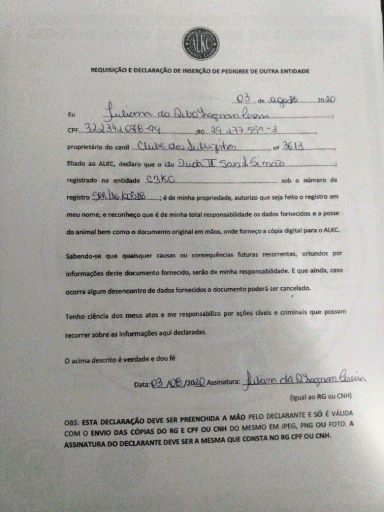 ALKC
REQUISIÇÃO E DECLARAÇÃO DE INSERÇÃO DE PEDIGREE DE OUTRA ENTIDADE
03 de agosto 2020
Eu Juliana da Pereira
CPF RG
proprietário do canil Clube dos nº 3613
filiado ao ALKC, declaro que o cão
registrado na entidade CBKC sob o número de
registro ; é de minha propriedade, autorizo que seja feito o registro em
meu nome, e reconheço que é de minha total responsabilidade os dados fornecidos e a posse
do animal bem como o documento original em mãos, onde forneço a cópia digital para o ALKC.
Sabendo-se que quaisquer causas ou consequências futuras recorrentes, oriundos por
informações deste documento fornecido, serão de minha responsabilidade. E que ainda, caso
ocorra algum desencontro de dados fornecidos o documento poderá ser cancelado.
Tenho ciência dos meus atos e me responsabilizo por ações cíveis e criminais que possam
recorrer sobre as informações aqui declaradas.
O acima descrito é verdade e dou fé
Data: 03/08/2020 Assinatura: Juliana da Pereira
(Igual ao RG ou CNH)
OBS: ESTA DECLARAÇÃO DEVE SER PREENCHIDA A MÃO PELO DECLARANTE E SÓ É VÁLIDA
COM O ENVIO DAS CÓPIAS DO RG E CPF OU CNH DO MESMO EM JPEG, PNG OU FOTO. A
ASSINATURA DO DECLARANTE DEVE SER A MESMA QUE CONSTA NO RG CPF OU CNH.